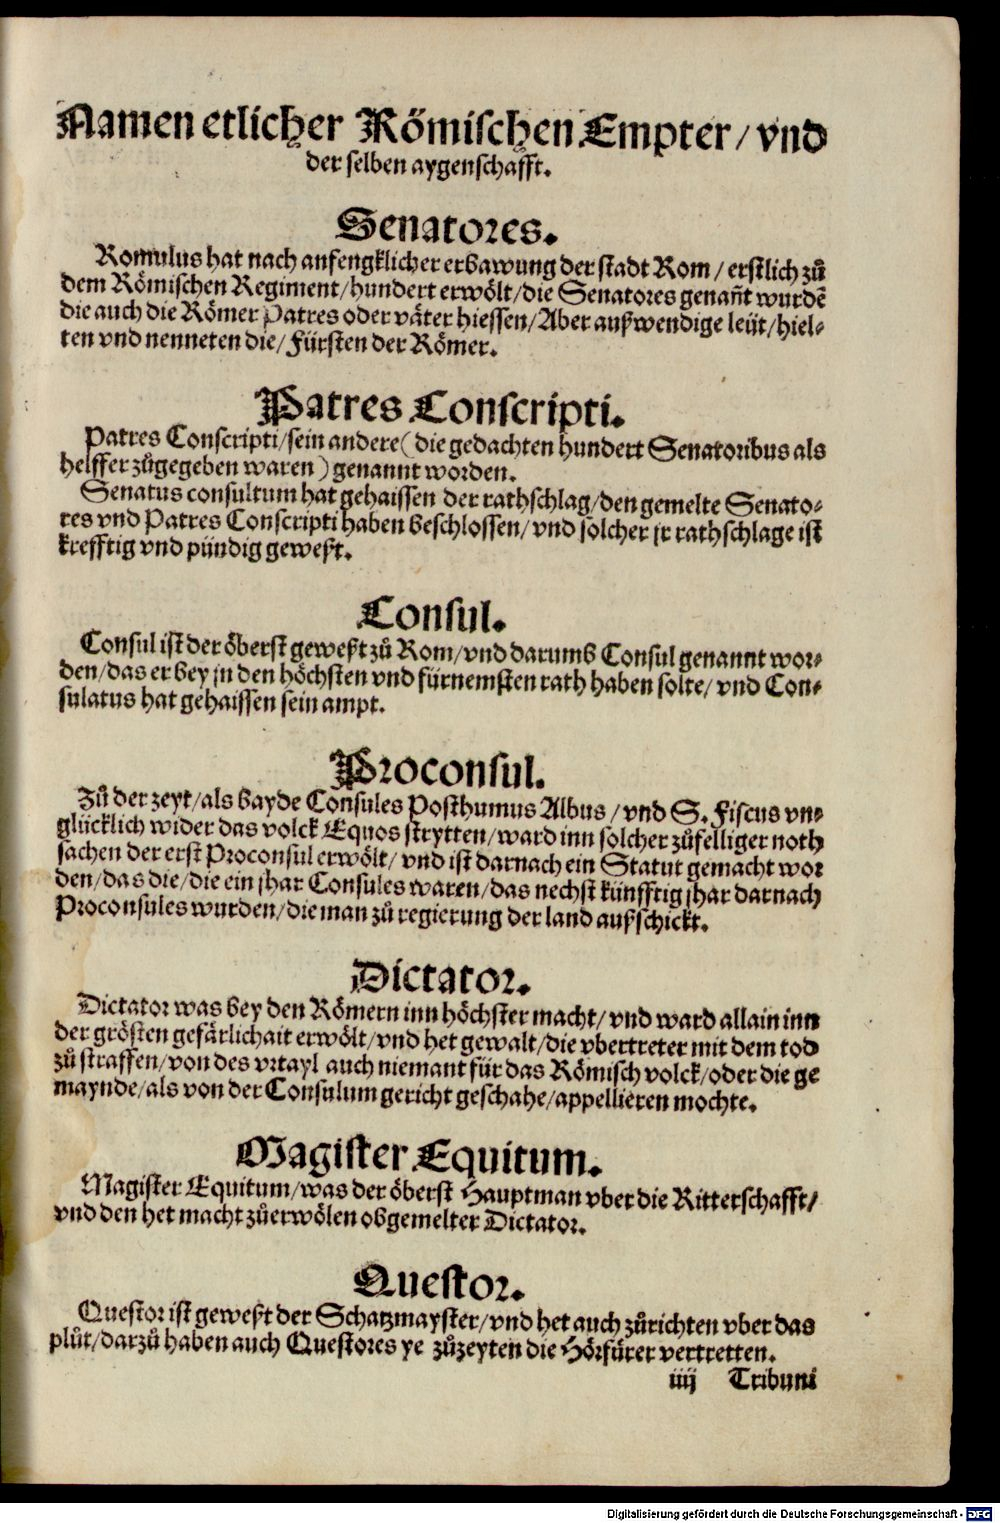 Namen etlicher Römischen Empter / vnd
der selben aygenschafft.
Senatores.
Romulus hat nach anfengklicher erbawung der stadt Rom / erstlich zů
dem Römischen Regiment / hundert erwölt / die Senatores genañt wurdē
die auch die Römer Patres oder väter hiessen / Aber außwendige leüt / hiel⸗
ten vnd nenneten die / Fürsten der Römer.
Patres Conscripti.
Patres Conscripti / sein andere ( die gedachten hundert Senatoribus als
helffer zůgegeben waren ) genannt worden.
Senatus consultum hat gehaissen der rathschlag / den gemelte Senato⸗
res vnd Patres Conscripti haben beschlossen / vnd solcher jr rathschlage ist
krefftig vnd pündig geweßt.
Consul.
Consul ist der öberst geweßt zů Rom / vnd darumb Consul genannt wor⸗
den / das er bey jn den höchsten vnd fürnemsten rath haben solte / vnd Con⸗
sulatus hat gehaissen sein ampt.
Proconsul.
Zů der zeyt / als bayde Consules Posthumus Albus / vnd S. Fiscus vn⸗
glücklich wider das volck Equos strytten / ward inn solcher zůfelliger noth
sachen der erst Proconsul erwölt / vnd ist darnach ein Statut gemacht wor
den / das die / die ein jhar Consules waren / das nechst künfftig jhar darnach
Proconsules wurden / die man zů regierung der land außschickt.
Dictator.
Dictator was bey den Römern inn höchster macht / vnd ward allain inn
der grösten gefärlichait erwölt / vnd het gewalt / die vbertreter mit dem tod
zů straffen / von des vrtayl auch niemant für das Römisch volck / oder die ge
maynde / als von der Consulum gericht geschahe / appellieren mochte.
Magister Equitum.
Magister Equitum / was der öberst Hauptman vber die Ritterschafft /
vnd den het macht zůerwölen obgemelter Dictator.
Questor.
Questor ist geweßt der Schatzmayster / vnd het auch zůrichten vber das
plůt / darzů haben auch Questores ye zůzeyten die Hörfürer vertretten.
iiij Tribuni
Digitalisierung gefördert durch die Deutsche Forschungsgemeinschaft - DFG